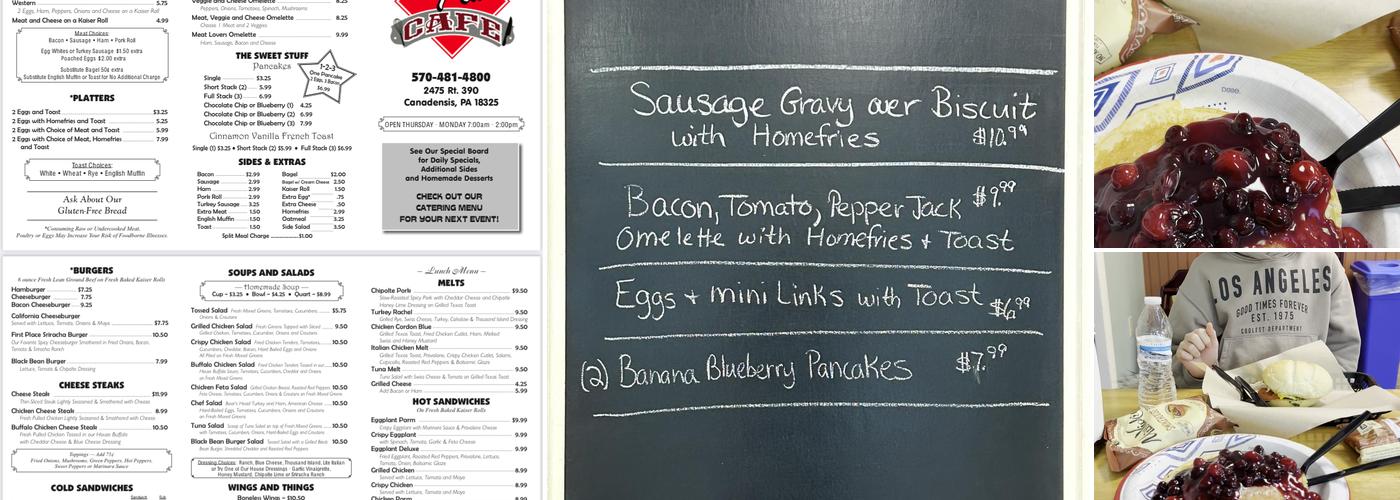 Western 5.75
2 Eggs, Ham, Peppers, Onions and Cheese on a Kaiser Roll
Meat and Cheese on a Kaiser Roll 4.99
Meat Choices:
Bacon • Sausage • Ham • Pork Roll
Egg Whites or Turkey Sausage $1.50 extra
Poached Eggs $2.00 extra
Substitute Bagel 50¢ extra
Substitute English Muffin or Toast for No Additional Charge
*PLATTERS
2 Eggs and Toast $3.25
2 Eggs with Homefries and Toast 5.25
2 Eggs with Choice of Meat and Toast 5.99
2 Eggs with Choice of Meat, Homefries 7.99
and Toast
Toast Choices:
White • Wheat • Rye • English Muffin
Ask About Our
Gluten-Free Bread
*Consuming Raw or Undercooked Meat,
Poultry or Eggs May Increase Your Risk of Foodborne Illnesses.
Veggie and Cheese Omelette 8.25
Peppers, Onions, Tomatoes, Spinach, Mushrooms
Meat, Veggie and Cheese Omelette 8.25
Choose 1 Meat and 2 Veggies
Meat Lovers Omelette 9.99
Ham, Sausage, Bacon and Cheese
THE SWEET STUFF
Pancakes
Single $3.25
Short Stack (2) 5.99
Full Stack (3) 6.99
Chocolate Chip or Blueberry (1) 4.25
Chocolate Chip or Blueberry (2) 6.99
Chocolate Chip or Blueberry (3) 7.99
1-2-3
One Pancake
2 Eggs, 3 Bacon
$6.99
Cinnamon Vanilla French Toast
Single (1) $3.25 • Short Stack (2) $5.99 • Full Stack (3) $6.99
SIDES & EXTRAS
Bacon $2.99
Sausage 2.99
Ham 2.99
Pork Roll 2.99
Turkey Sausage 3.25
Extra Meat 1.50
English Muffin 1.50
Toast 1.50
Bagel $2.00
Bagel w/ Cream Cheese 2.50
Kaiser Roll 1.50
Extra Egg* .75
Extra Cheese .50
Homefries 2.99
Oatmeal 3.25
Side Salad 3.50
Split Meal Charge $1.00
CAFE
570-481-4800
2475 Rt. 390
Canadensis, PA 18325
OPEN THURSDAY - MONDAY 7:00am - 2:00pm
See Our Special Board
for Daily Specials,
Additional Sides
and Homemade Desserts
CHECK OUT OUR
CATERING MENU
FOR YOUR NEXT EVENT!
*BURGERS
8 ounce Fresh Lean Ground Beef on Fresh Baked Kaiser Rolls
Hamburger $7.25
Cheeseburger 7.75
Bacon Cheeseburger 9.25
California Cheeseburger
Served with Lettuce, Tomato, Onions & Mayo $7.75
First Place Sriracha Burger 10.50
Our Favorite Spicy Cheeseburger Smothered in Fried Onions, Bacon,
Tomato & Sriracha Ranch
Black Bean Burger 7.99
Lettuce, Tomato & Chipotle Dressing
CHEESE STEAKS
Cheese Steak $11.99
Thin Sliced Steak Lightly Seasoned & Smothered with Cheese
Chicken Cheese Steak 8.99
Fresh Pulled Chicken Lightly Seasoned & Smothered with Cheese
Buffalo Chicken Cheese Steak 10.50
Fresh Pulled Chicken Tossed in our House Buffalo
with Cheddar Cheese & Blue Cheese Dressing
Toppings — Add 75¢
Fried Onions, Mushrooms, Green Peppers, Hot Peppers,
Sweet Peppers or Marinara Sauce
COLD SANDWICHES
Sandwich Sub
SOUPS AND SALADS
— Homemade Soup —
Cup – $3.25 • Bowl – $4.25 • Quart – $8.99
Tossed Salad Fresh Mixed Greens, Tomatoes, Cucumbers, $5.75
Onions & Croutons
Grilled Chicken Salad Fresh Greens Topped with Sliced 9.50
Grilled Chicken, Tomatoes, Cucumbers, Onions and Croutons
Crispy Chicken Salad Fried Chicken Tenders, Tomatoes, 10.50
Cucumbers, Cheddar, Bacon, Hard Boiled Eggs and Onions
All Piled on Fresh Mixed Greens
Buffalo Chicken Salad Fried Chicken Tenders Tossed in our 10.50
on Fresh Mixed Greens
Chicken Feta Salad Grilled Chicken Breast, Roasted Red Peppers 10.50
Feta Cheese, Tomatoes, Cucumbers, Onions & Croutons on Fresh Mixed Greens
Chef Salad Boar's Head Turkey and Ham, American Cheese 10.50
Hard-Boiled Eggs, Tomatoes, Cucumbers, Onions and Croutons
on Fresh Mixed Greens
Tuna Salad Scoop of Tuna Salad on top of Fresh Mixed Greens 10.50
with Tomatoes, Cucumbers, Onions, Hard-Boiled Eggs and Croutons
Black Bean Burger Salad Tossed Salad with a Grilled Black 10.50
Bean Burger, Shredded Cheddar and Roasted Red Peppers
Dressing Choices: Ranch, Blue Cheese, Thousand Island, Lite Italian
or Try One of Our House Dressings - Garlic Vinaigrette,
Honey Mustard, Chipotle Lime or Sriracha Ranch
WINGS AND THINGS
Boneless Wings – $10.50
— Lunch Menu —
MELTS
Chipotle Pork $9.50
Slow-Roasted Spicy Pork with Cheddar Cheese and Chipotle
Honey Lime Dressing on Grilled Texas Toast
Turkey Rachel 9.50
Grilled Rye, Swiss Cheese, Turkey, Coleslaw & Thousand Island Dressing
Chicken Cordon Blue 9.50
Grilled Texas Toast, Fried Chicken Cutlet, Ham, Melted
Swiss and Honey Mustard
Italian Chicken Melt 9.50
Grilled Texas Toast, Provolone, Crispy Chicken Cutlet, Salami,
Capicola, Roasted Red Peppers & Balsamic Glaze
Tuna Melt 9.50
Tuna Salad with Swiss Cheese & Tomato on Grilled Texas Toast
Grilled Cheese 4.25
Add Bacon or Ham 5.99
HOT SANDWICHES
On Fresh Baked Kaiser Rolls
Eggplant Parm $9.99
Crispy Eggplant with Marinara Sauce & Provolone Cheese
Crispy Eggplant 9.99
with Spinach, Tomato, Garlic & Feta Cheese
Eggplant Deluxe 9.99
Fried Eggplant, Roasted Red Peppers, Provolone, Lettuce,
Tomato, Onion, Balsamic Glaze
Grilled Chicken 8.99
Served with Lettuce, Tomato and Mayo
Crispy Chicken 8.99
Served with Lettuce, Tomato and Mayo
Chicken Parm 9.50
Sausage Gravy over Biscuit
with Homefries $10.99
Bacon, Tomato, Pepper Jack $9.99
Omelette with Homefries + Toast
Eggs + mini Links with Toast $6.99
(2) Banana Blueberry Pancakes $7.99
Dixie
LOS ANGELES
GOOD TIMES FOREVER
EST. 1975
COOLEST DEPARTMENT